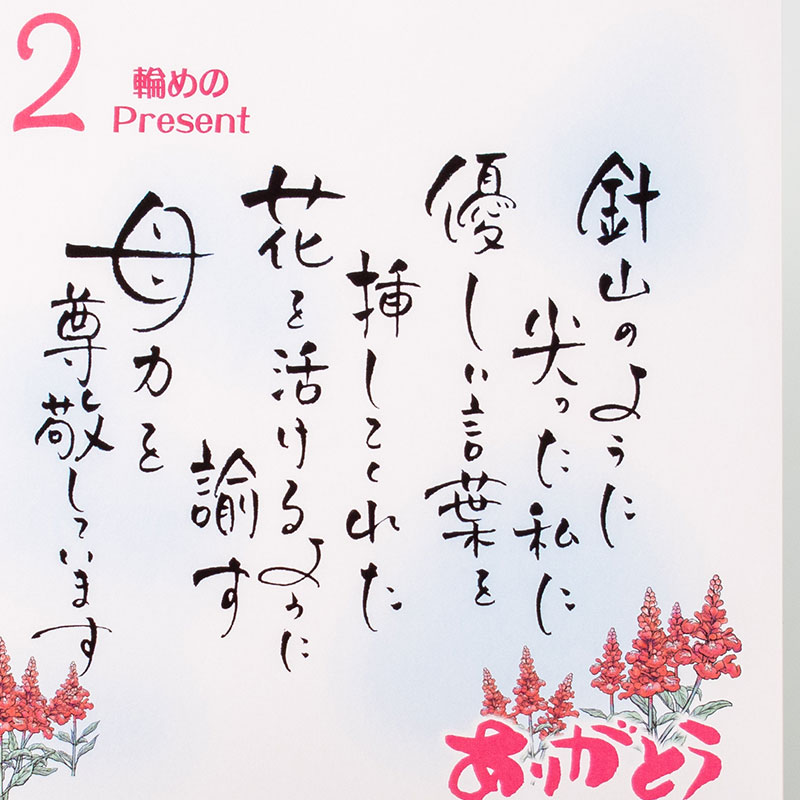 2
輪めの
Present
針山のように
尖った私に
優しい言葉を
挿してくれた
花を活けるように
諭す
母力を
尊敬しています
ありがとう